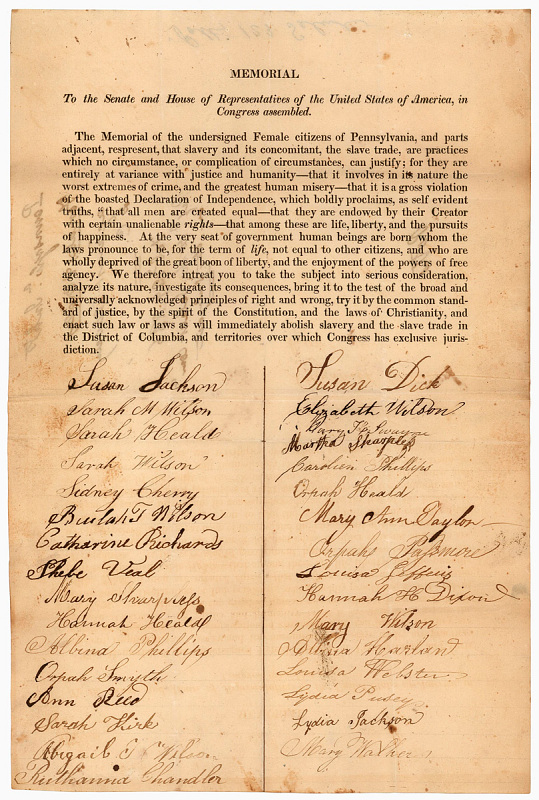 MEMORIAL
To the Senate and House of Representatives of the United States of America, in
Congress assembled.
The Memorial of the undersigned Female citizens of Pennsylvania, and parts
adjacent, respresent, that slavery and its concomitant, the slave trade, are practices
which no circumstance, or complication of circumstances, can justify; for they are
entirely at variance with justice and humanity—that it involves in its nature the
worst extremes of crime, and the greatest human misery—that it is a gross violation
of the boasted Declaration of Independence, which boldly proclaims, as self evident
truths, "that all men are created equal—that they are endowed by their Creator
with certain unalienable rights—that among these are life, liberty, and the pursuits
of happiness. At the very seat of government human beings are born whom the
laws pronounce to be, for the term of life, not equal to other citizens, and who are
wholly deprived of the great boon of liberty, and the enjoyment of the powers of free
agency. We therefore intreat you to take the subject into serious consideration,
analyze its nature, investigate its consequences, bring it to the test of the broad and
universally acknowledged principles of right and wrong, try it by the common stand-
ard of justice, by the spirit of the Constitution, and the laws of Christianity, and
enact such law or laws as will immediately abolish slavery and the slave trade in
the District of Columbia, and territories over which Congress has exclusive juris-
diction.
Susan Jackson
Sarah M Wilson
Sarah Heald
Sarah Wilson
Sidney Cherry
Beulah T Wilson
Catharine Richards
Phebe Veal
Mary Sharpless
Hannah Heald
Albina Phillips
Orpah Smyth
Ann Reed
Sarah Kirk
Abigail Wilson
Ruthanna Chandler
Susan Dick
Elizabeth Wilson
Mary
Martha Sharpless
Carolien Phillips
Orpah Heald
Mary Ann Taylor
Orpah Passmore
Louisa
Hannah H Dixon
Mary Wilson
Harland
Louisa Webster
Lydia Pusey
Lydia Jackson
Mary Walker